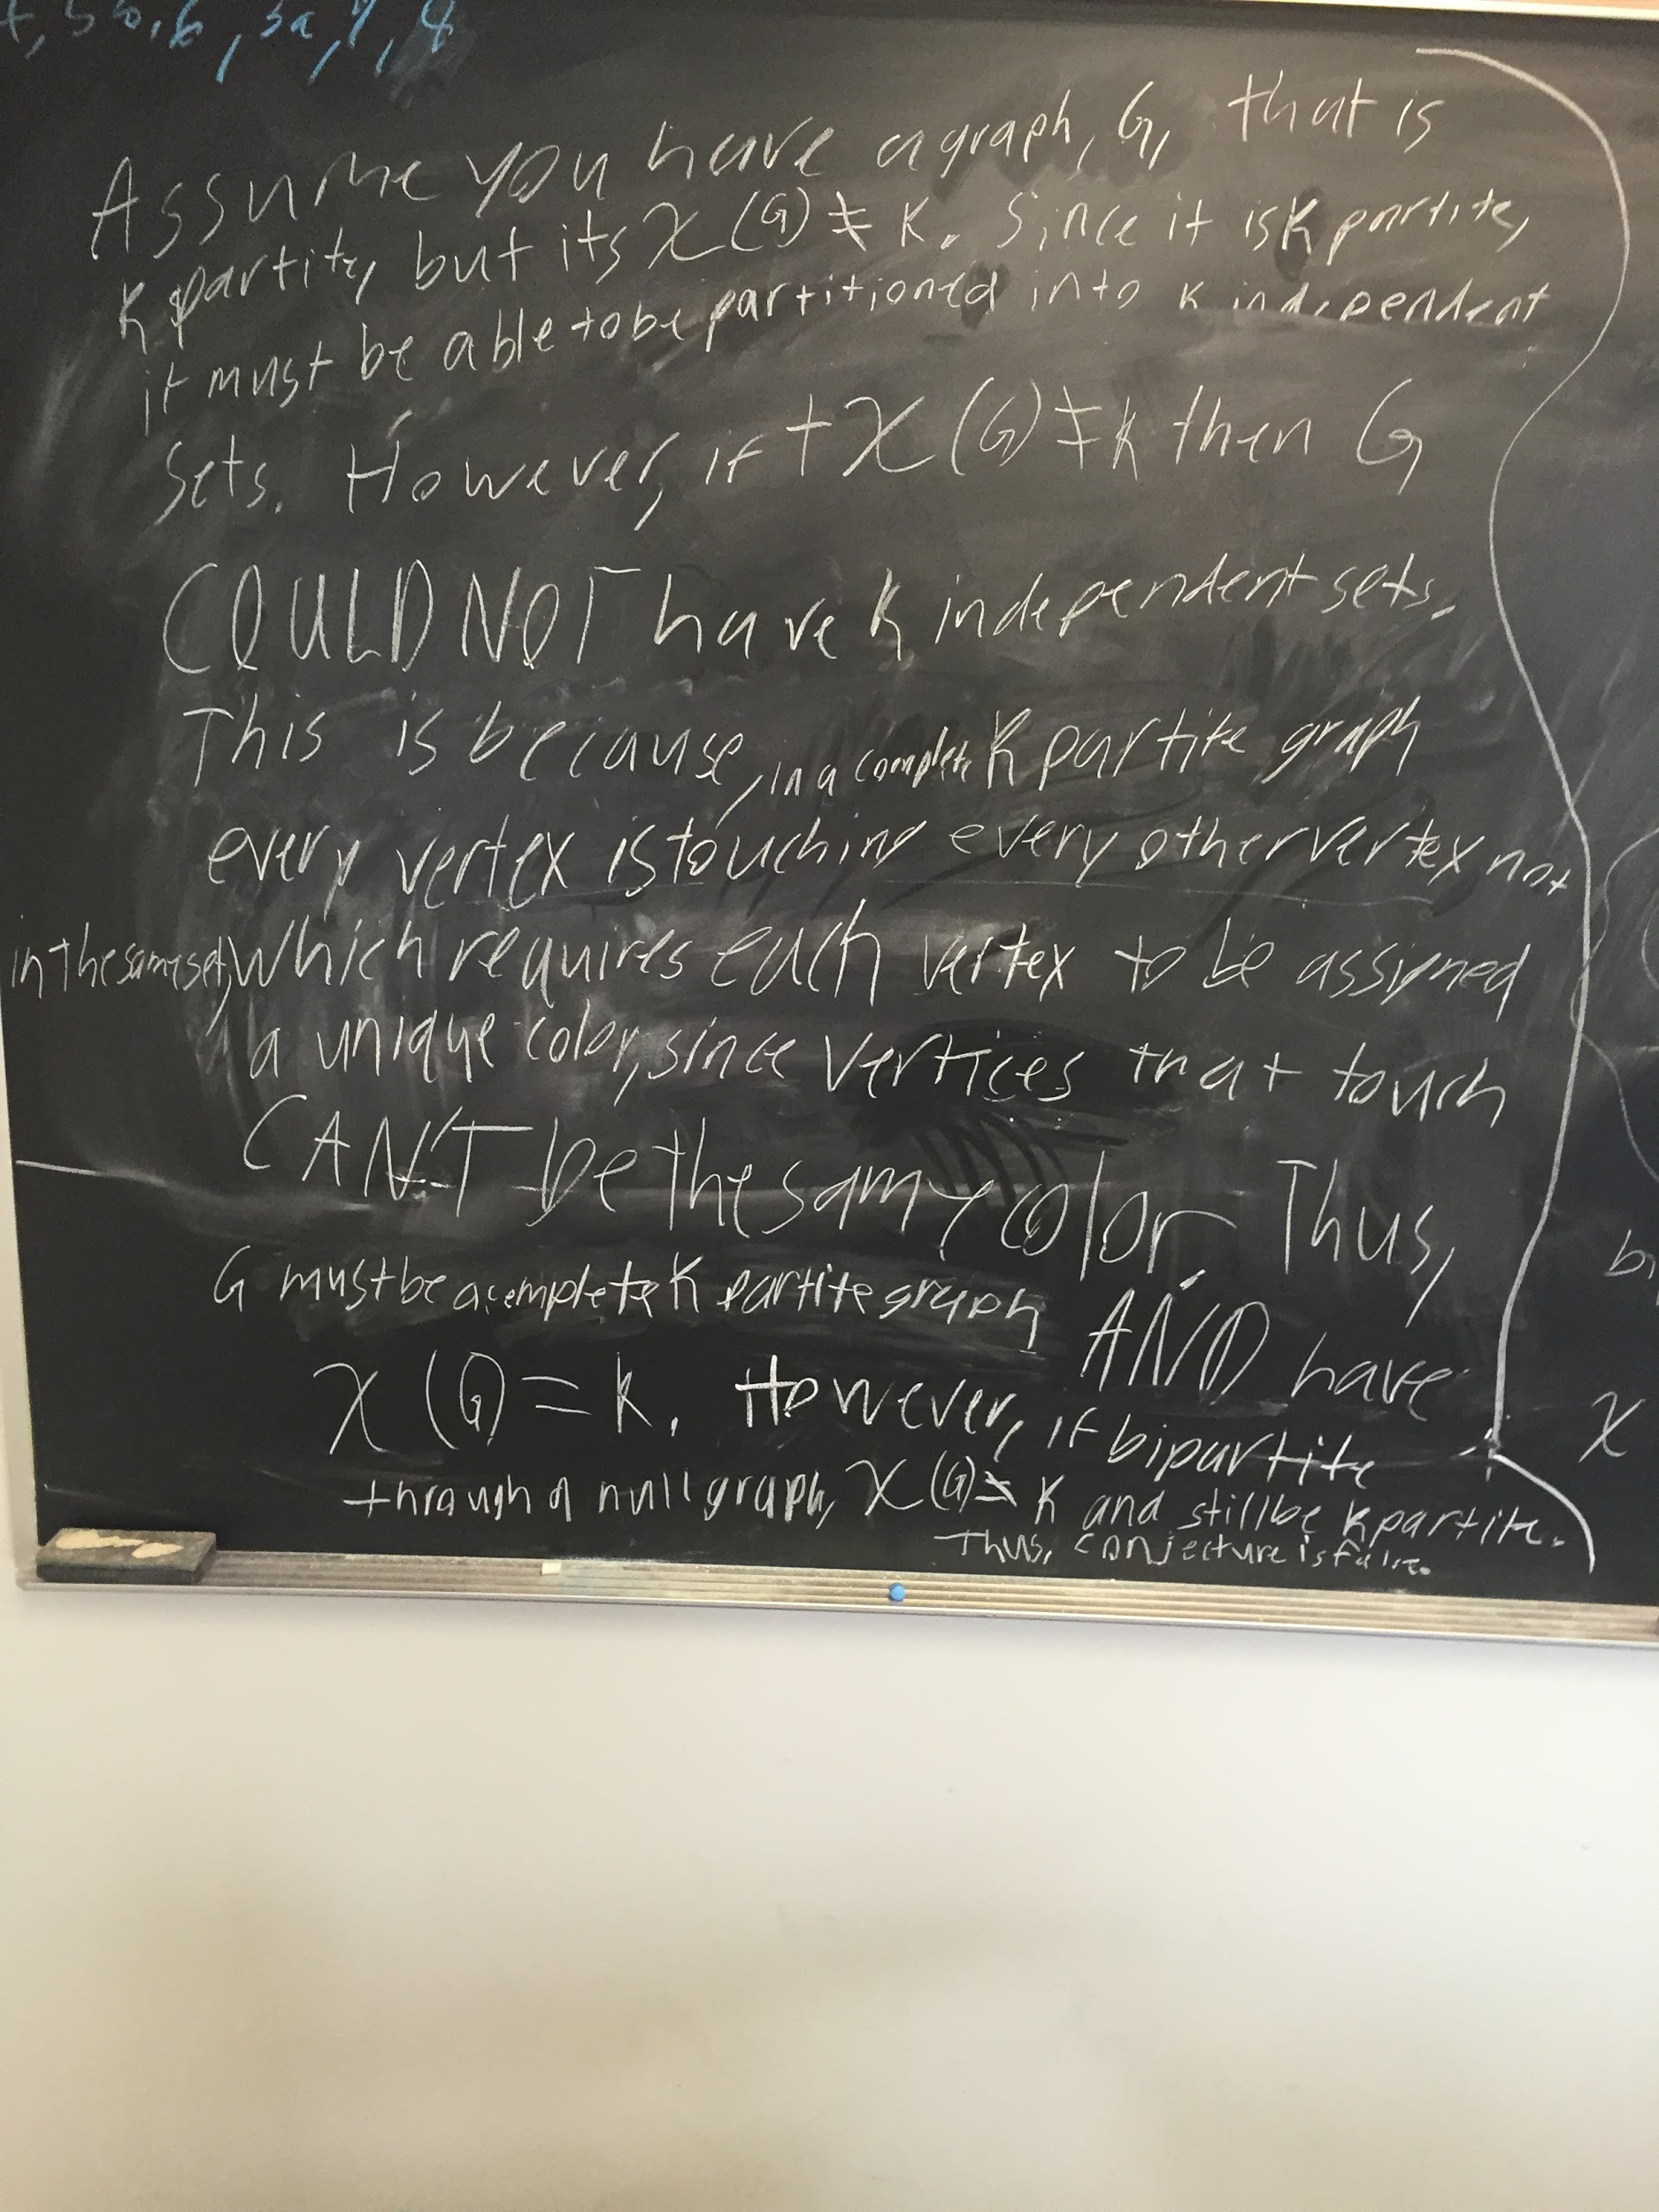 Assume you have a graph, G, that is
K partite, but its χ(G) ≠ K. Since it is K partite,
it must be able to be partitioned into K independent
sets. However, if + χ(G) ≠ K then G
COULD NOT have K independent sets.
This is because, in a complete K partite graph
every vertex is touching every other vertex not
in the same set, which requires each vertex to be assigned
a unique color, since vertices that touch
CAN'T be the same color. Thus,
G must be a complete K partite graph AND have
χ(G) = K. However, if bipartite
through a null graph, χ(G) K and still be K partite.
Thus, conjecture is false.
χ